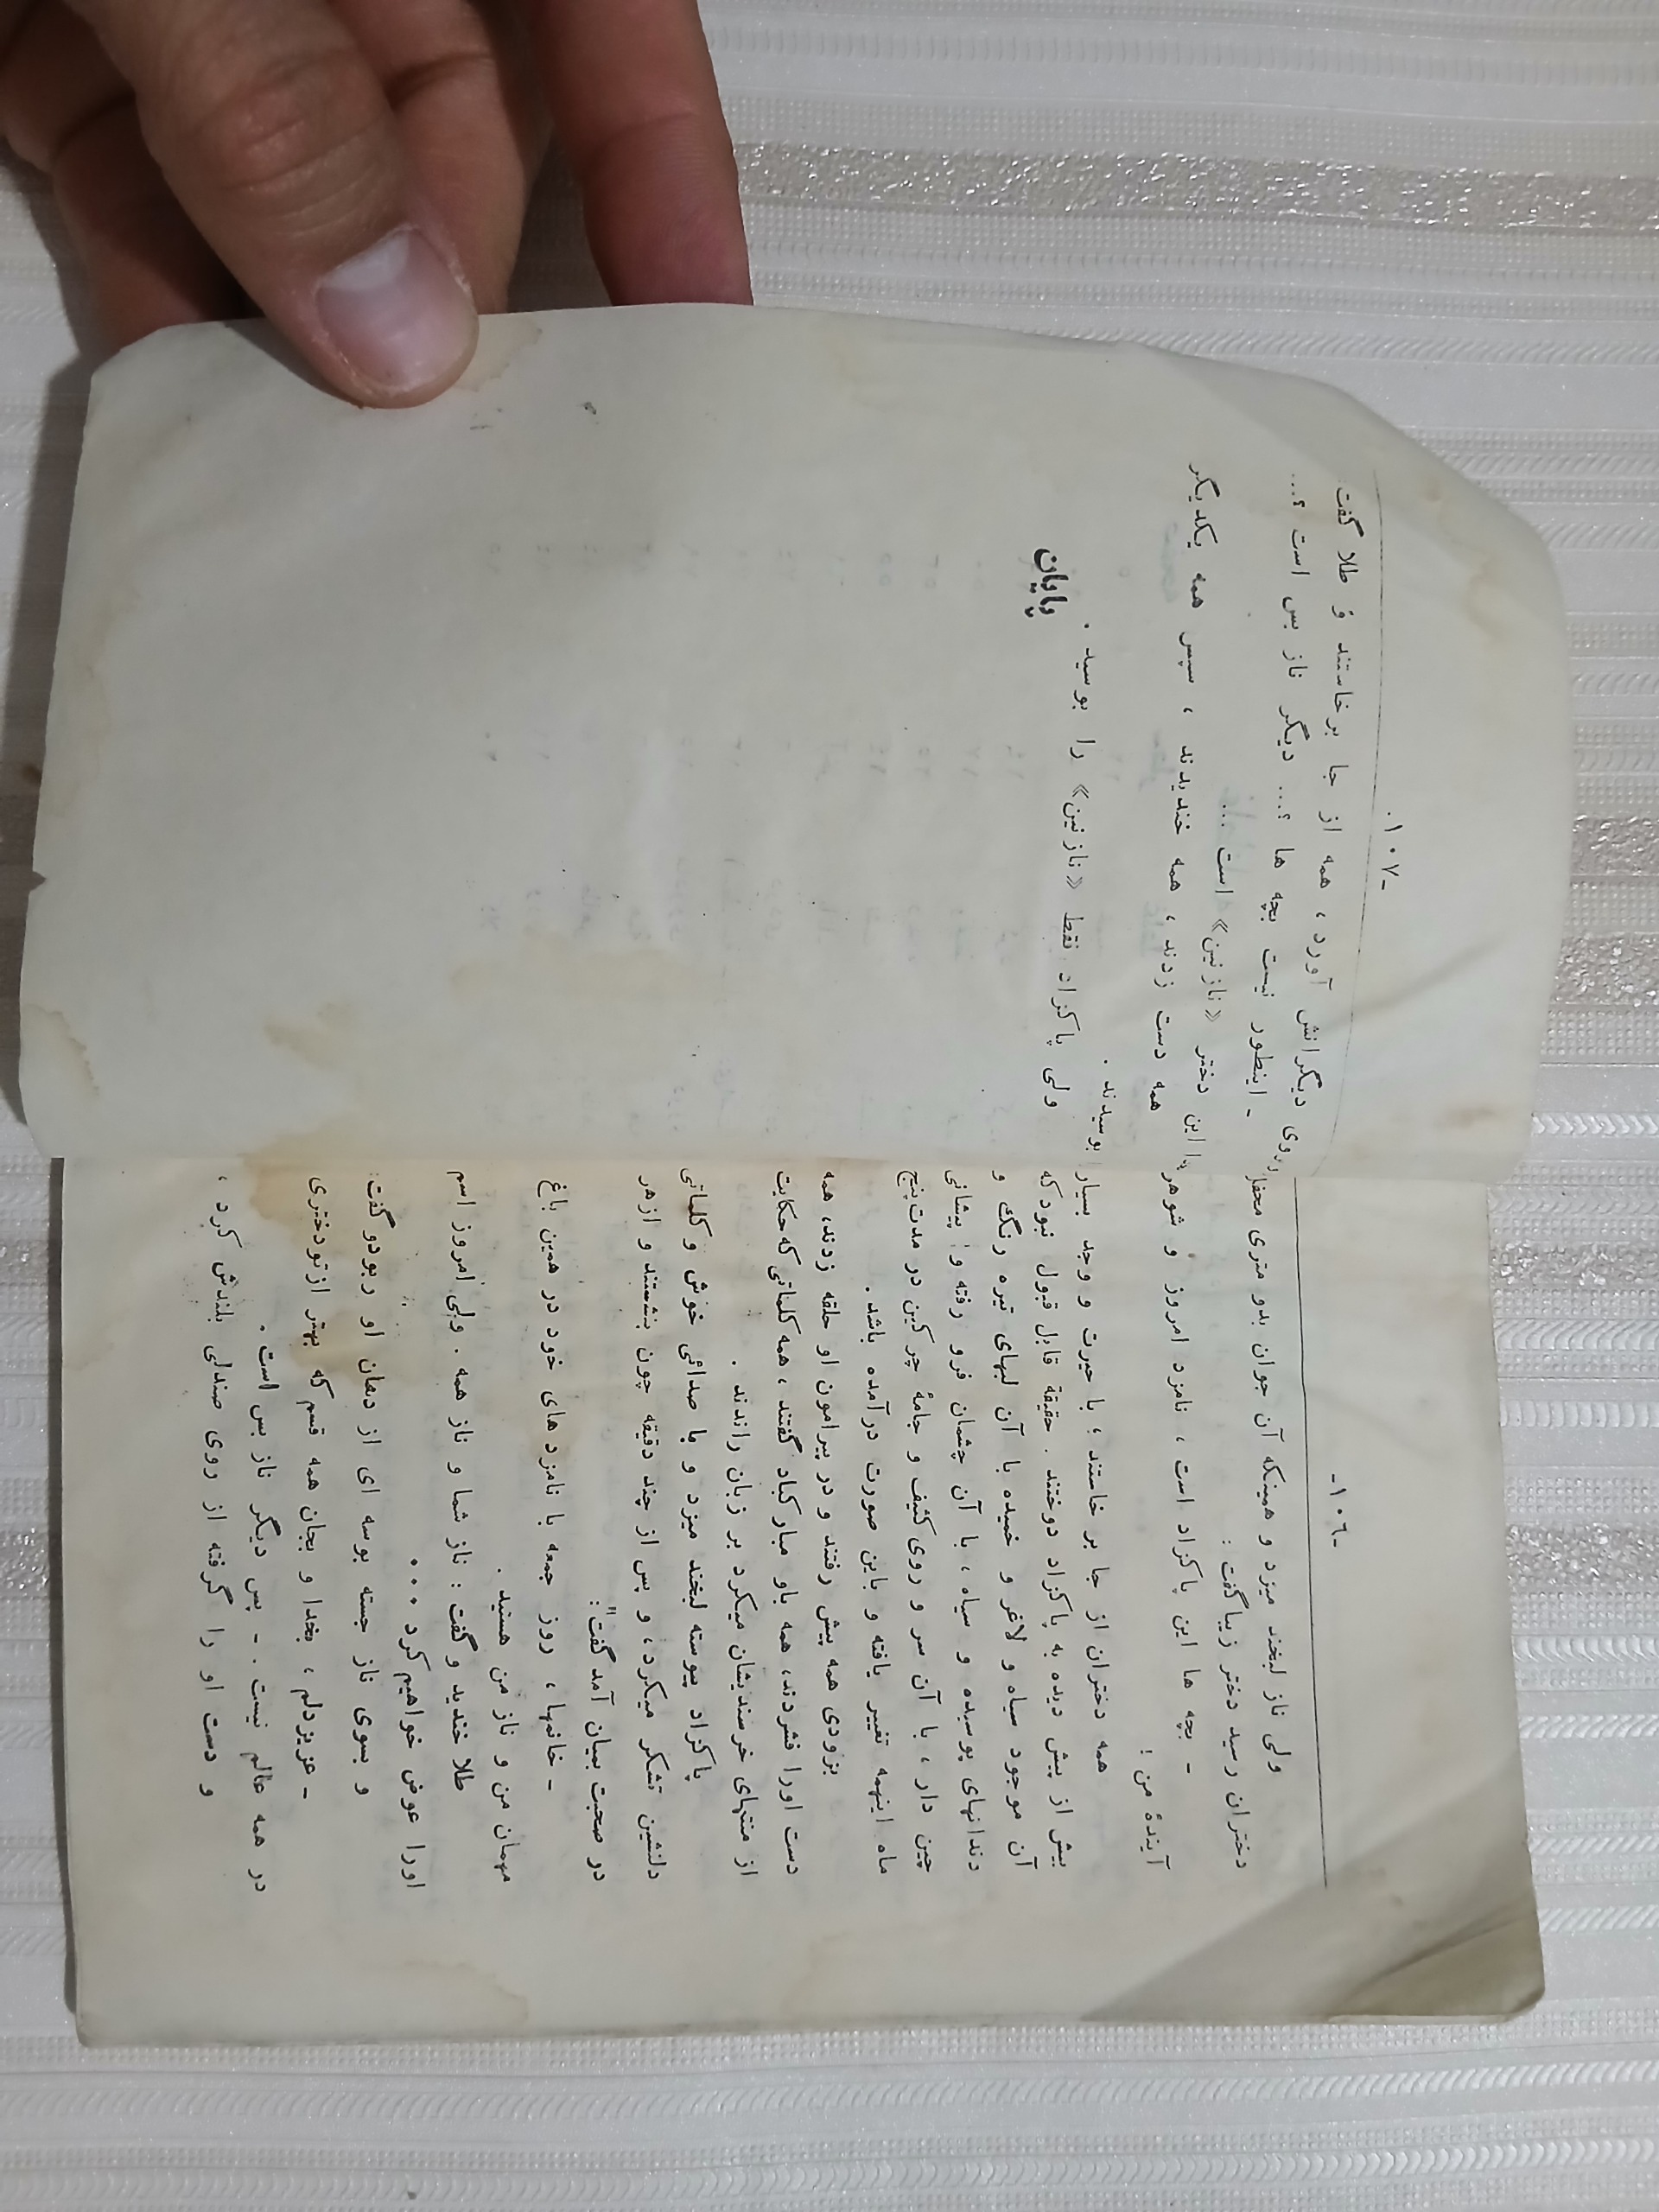 -۱۰۶-
ولی ناز لبخند میزد و همینکه آن جوان بدو متری محفل
دختران رسید دختر زیبا گفت :
- بچه ها این پاکزاد است ، نامزد امروز و شوهر
آیندهٔ من !
همه دختران از جا بر خاستند ؛ با حیرت و وجد بسیار
بیش از پیش دیده به پاکزاد دوختند . حقیقة قابل قبول نبود که
آن موجود سیاه و لاغر و خمیده با آن لبهای تیره رنگ و
دندانهای پوسیده و سیاه ، با آن چشمان فرو رفته و پیشانی
چین دار ، با آن سر و روی کثیف و جامهٔ چرکین در مدت پنج
ماه اینهمه تغییر یافته و باین صورت درآمده باشد .
بزودی همه پیش رفتند و در پیرامون او حلقه زدند، همه
دست اورا فشردند، همه باو مبارکباد گفتند ، همه کلماتی که حکایت
از منتهای خرسندیشان میکرد بر زبان راندند .
پاکزاد پیوسته لبخند میزد و با صدائی خوش و کلماتی
دلنشین تشکر میکرد، و پس از چند دقیقه چون بنشستند و از هر
در صحبت بمیان آمد گفت :
- خانمها ، روز جمعه با نامزد های خود در همین باغ
مهمان من و ناز من هستید .
طلا خندید و گفت : ناز شما و ناز همه . ولی امروز اسم
اورا عوض خواهیم کرد ...
و بسوی ناز جسته بوسه ای از دهان او ربود و گفت :
- عزیزدلم ، بخدا و بجان همه قسم که بهتر از تو دختری
در همه عالم نیست . - پس دیگر ناز بس است .
و دست او را گرفته از روی صندلی بلندش کرد ،
-۱۰۷-
روی دیگرانش آورد ، همه از جا برخاستند و طلا گفت
- اینطور نیست بچه ها ؟... دیگر ناز بس است ؟...
این دختر «نازنین» است ...
همه دست زدند ، همه خندیدند ، سپس همه یکدیگر
بوسیدند .
ولی پاکزاد فقط «نازنین» را بوسید .
پایان